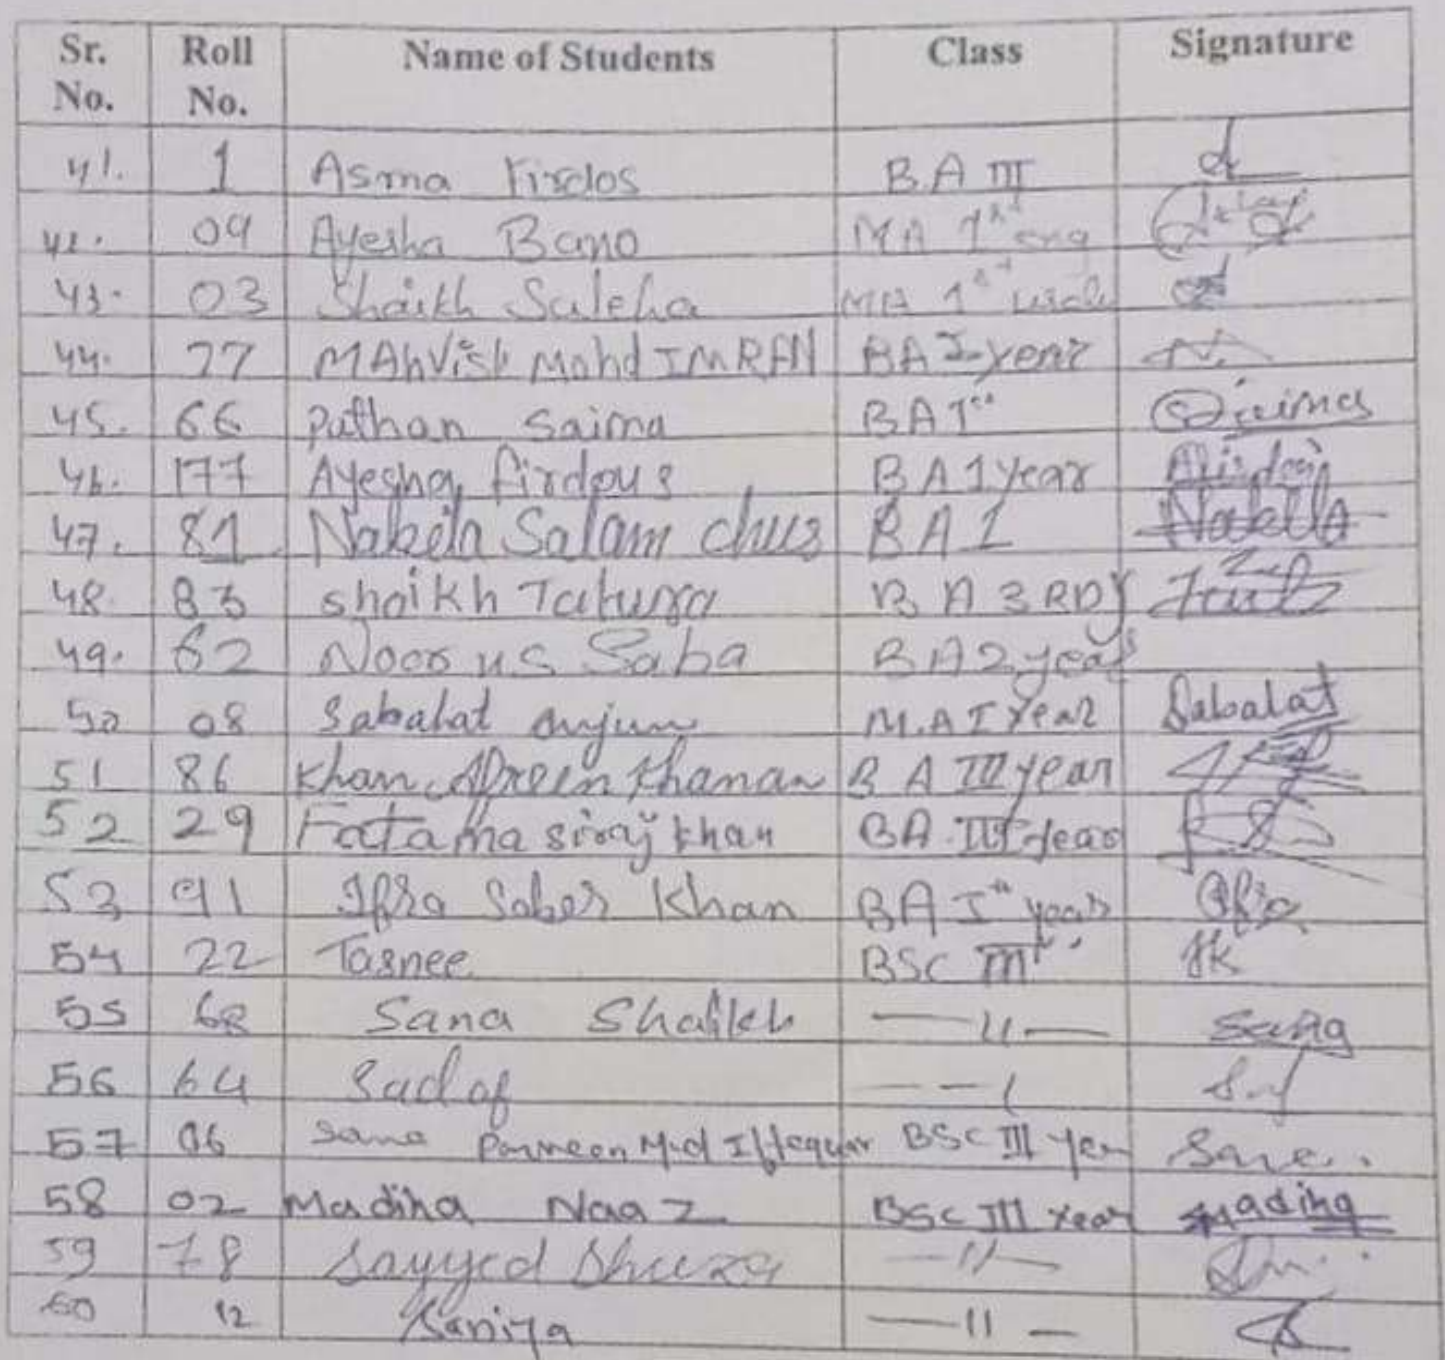 Sr. No. Roll No. Name of Students Class Signature
41. 1 Asma Firdos B.A III
42. 09 Ayesha Bano MA 1st eng
43. 03 Shaikh Saleha MA 1st
44. 77 MAhVish Mohd IMRAN BA I year
45. 66 Pathan Saima BA Ist Saima
46. 177 Ayesha firdous BA 1 year
47. 81 Nabila Salam chus BA 1 Nabila
48. 83 shaikh BA 3 RD Y
49. 62 Noor us Saba BA 2 year
50 08 Sabahat anjum M.A I Year Sabahat
51 86 Khan Afreen Khanam B A III year
52 29 Fatama siraj khan BA III year
53 91 Ifra Saber Khan BA Ist year Ifra
54 22 Tasnee BSC III JK
55 68 Sana Shaikh —11— Sana
56 64 Sadaf
57 06 Sana Parveen Md Iftequar BSC III Year Sane..
58 02 Madiha Naaz BSC III Year madiha
59 78 Sayyed Shuza —11—
60 12 Saniya —11—